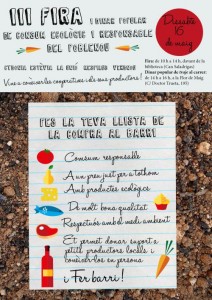 III FIRA
I DINAR POPULAR
DE CONSUM ECOLÒGIC I RESPONSABLE
DEL POBLENOU
Dissabte
16
de maig
Vine a conèixer les cooperatives i els seus productors!
Fira: de 10 h a 14 h, davant de la
Biblioteca (Can Saladrigas)
Dinar popular de traje al carrer:
de 14 h a 16 h, a la Flor de Maig
(C/ Doctor Trueta, 195)
FES LA TEVA LLISTA DE
LA COMPRA AL BARRI
Consum responsable
A un preu just per a tothom
Amb productes ecològics
De molt bona qualitat
Respectuós amb el medi ambient
Et permet donar suport a
petits productors locals i
conèixer-los en persona
i Fer barri!